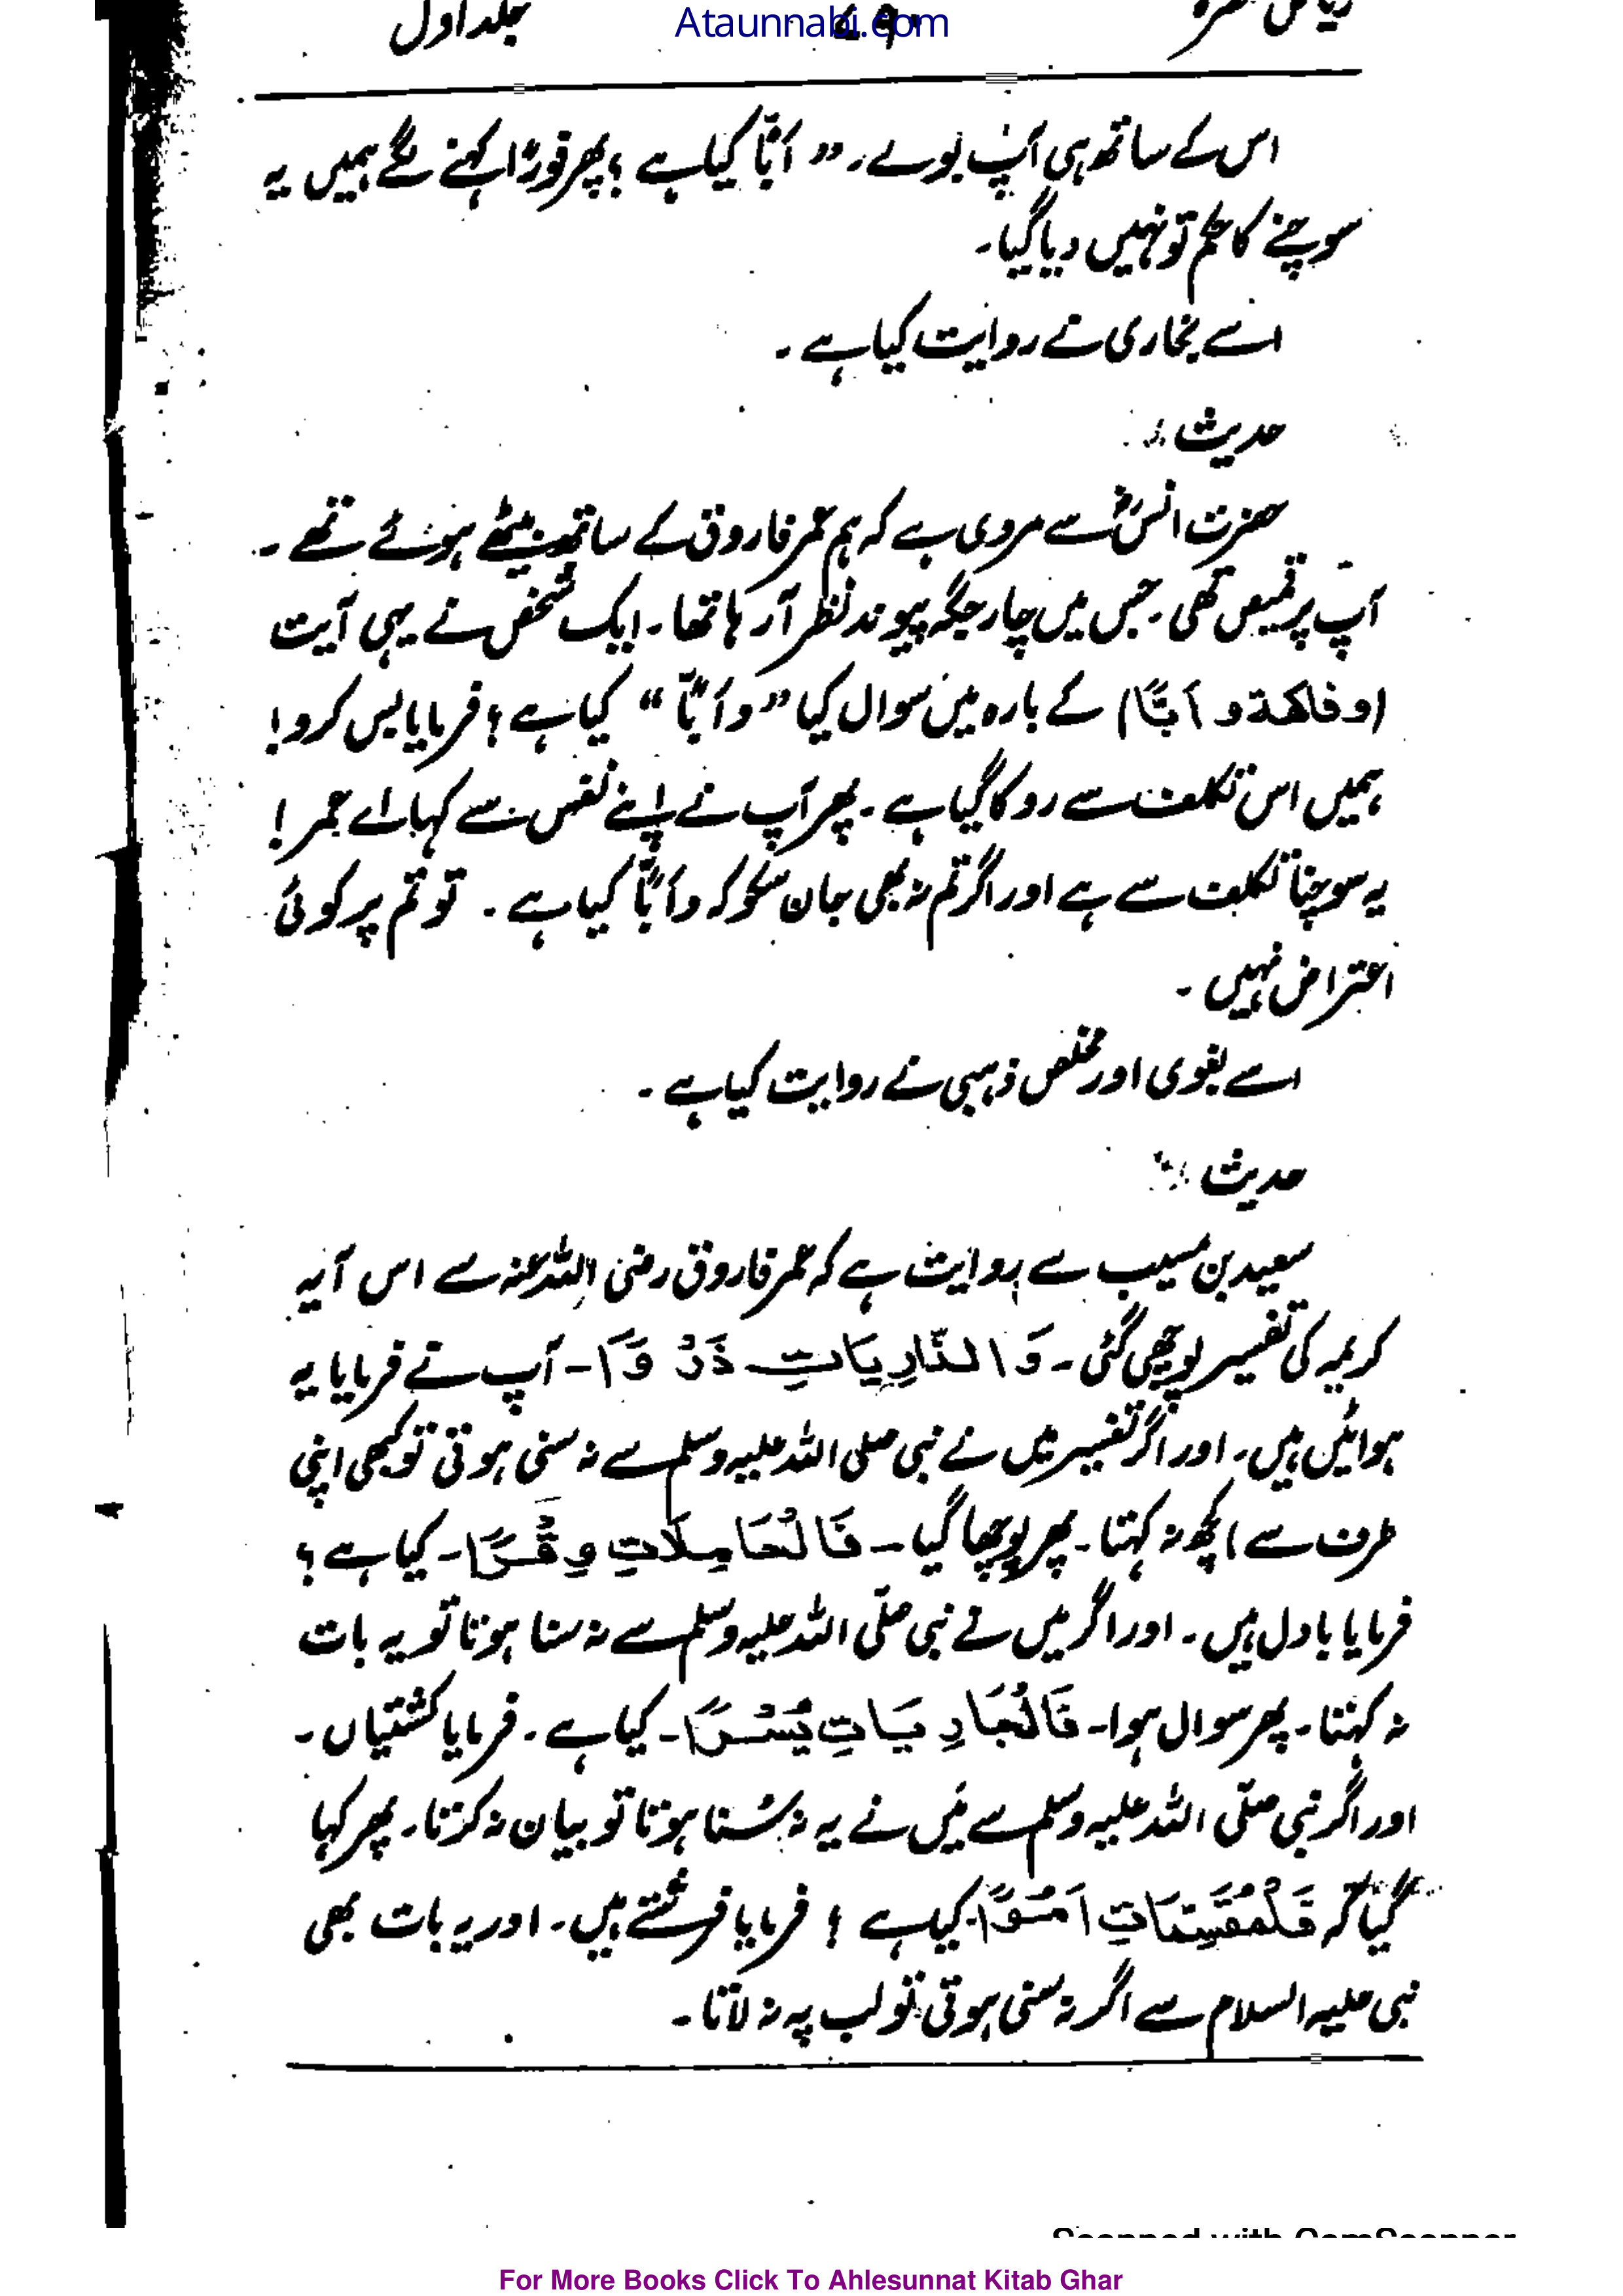 Ataunnabi.com
جلد اول
اس کے ساتھ ہی آپ بولے۔ ”أبًّا کیا ہے؟ پھر فورًا کہنے لگے ہمیں یہ
سوچنے کا حکم تو نہیں دیا گیا۔
اسے بخاری نے روایت کیا ہے۔
حدیث
حضرت انسؓ سے مروی ہے کہ ہم عمر فاروق کے ساتھ بیٹھے ہوئے تھے۔
آپ پر قمیص تھی۔ جس میں چار جگہ پیوند نظر آ رہا تھا۔ ایک شخص نے یہی آیت
(وفاكهة و أبًّا) کے بارہ میں سوال کیا ”وأبًّا“ کیا ہے؟ فرمایا بس کرو!
ہمیں اس تکلف سے روکا گیا ہے۔ پھر آپ نے اپنے نفس سے کہا۔ اے عمر!
یہ سوچنا تکلف سے ہے اور اگر تم نہ بھی جان سکو کہ وأبًّا کیا ہے۔ تو تم پر کوئی
اعتراض نہیں۔
اسے بغوی اور مخلص ذہبی نے روایت کیا ہے۔
حدیث
سعید بن مسیب سے روایت ہے کہ عمر فاروق رضی اللہ عنہ سے اس آیہ
کریمہ کی تفسیر پوچھی گئی۔ وَالذَّارِيَاتِ ذَرْوًا۔ آپ نے فرمایا یہ
ہوائیں ہیں۔ اور اگر تفسیر میں نے نبی صلی اللہ علیہ وسلم سے نہ سنی ہوتی تو کبھی اپنی
طرف سے کچھ نہ کہتا۔ پھر پوچھا گیا۔ فَالْحَامِلَاتِ وِقْرًا۔ کیا ہے؟
فرمایا بادل ہیں۔ اور اگر میں نے نبی صلّی اللہ علیہ وسلم سے نہ سنا ہوتا تو یہ بات
نہ کہتا۔ پھر سوال ہوا۔ فَالْجَارِيَاتِ يُسْرًا۔ کیا ہے۔ فرمایا کشتیاں۔
اور اگر نبی صلّی اللہ علیہ وسلم سے میں نے یہ نہ سُنا ہوتا تو بیان نہ کرتا۔ پھر کہا
گیا کہ فَلْمُقَسِّمَاتِ اَمْرًا۔ کیا ہے؟ فرمایا فرشتے ہیں۔ اور یہ بات بھی
نبی علیہ السلام سے اگر نہ سنی ہوتی تو لب پہ نہ لاتا۔
Scanned with CamScanner
For More Books Click To Ahlesunnat Kitab Ghar